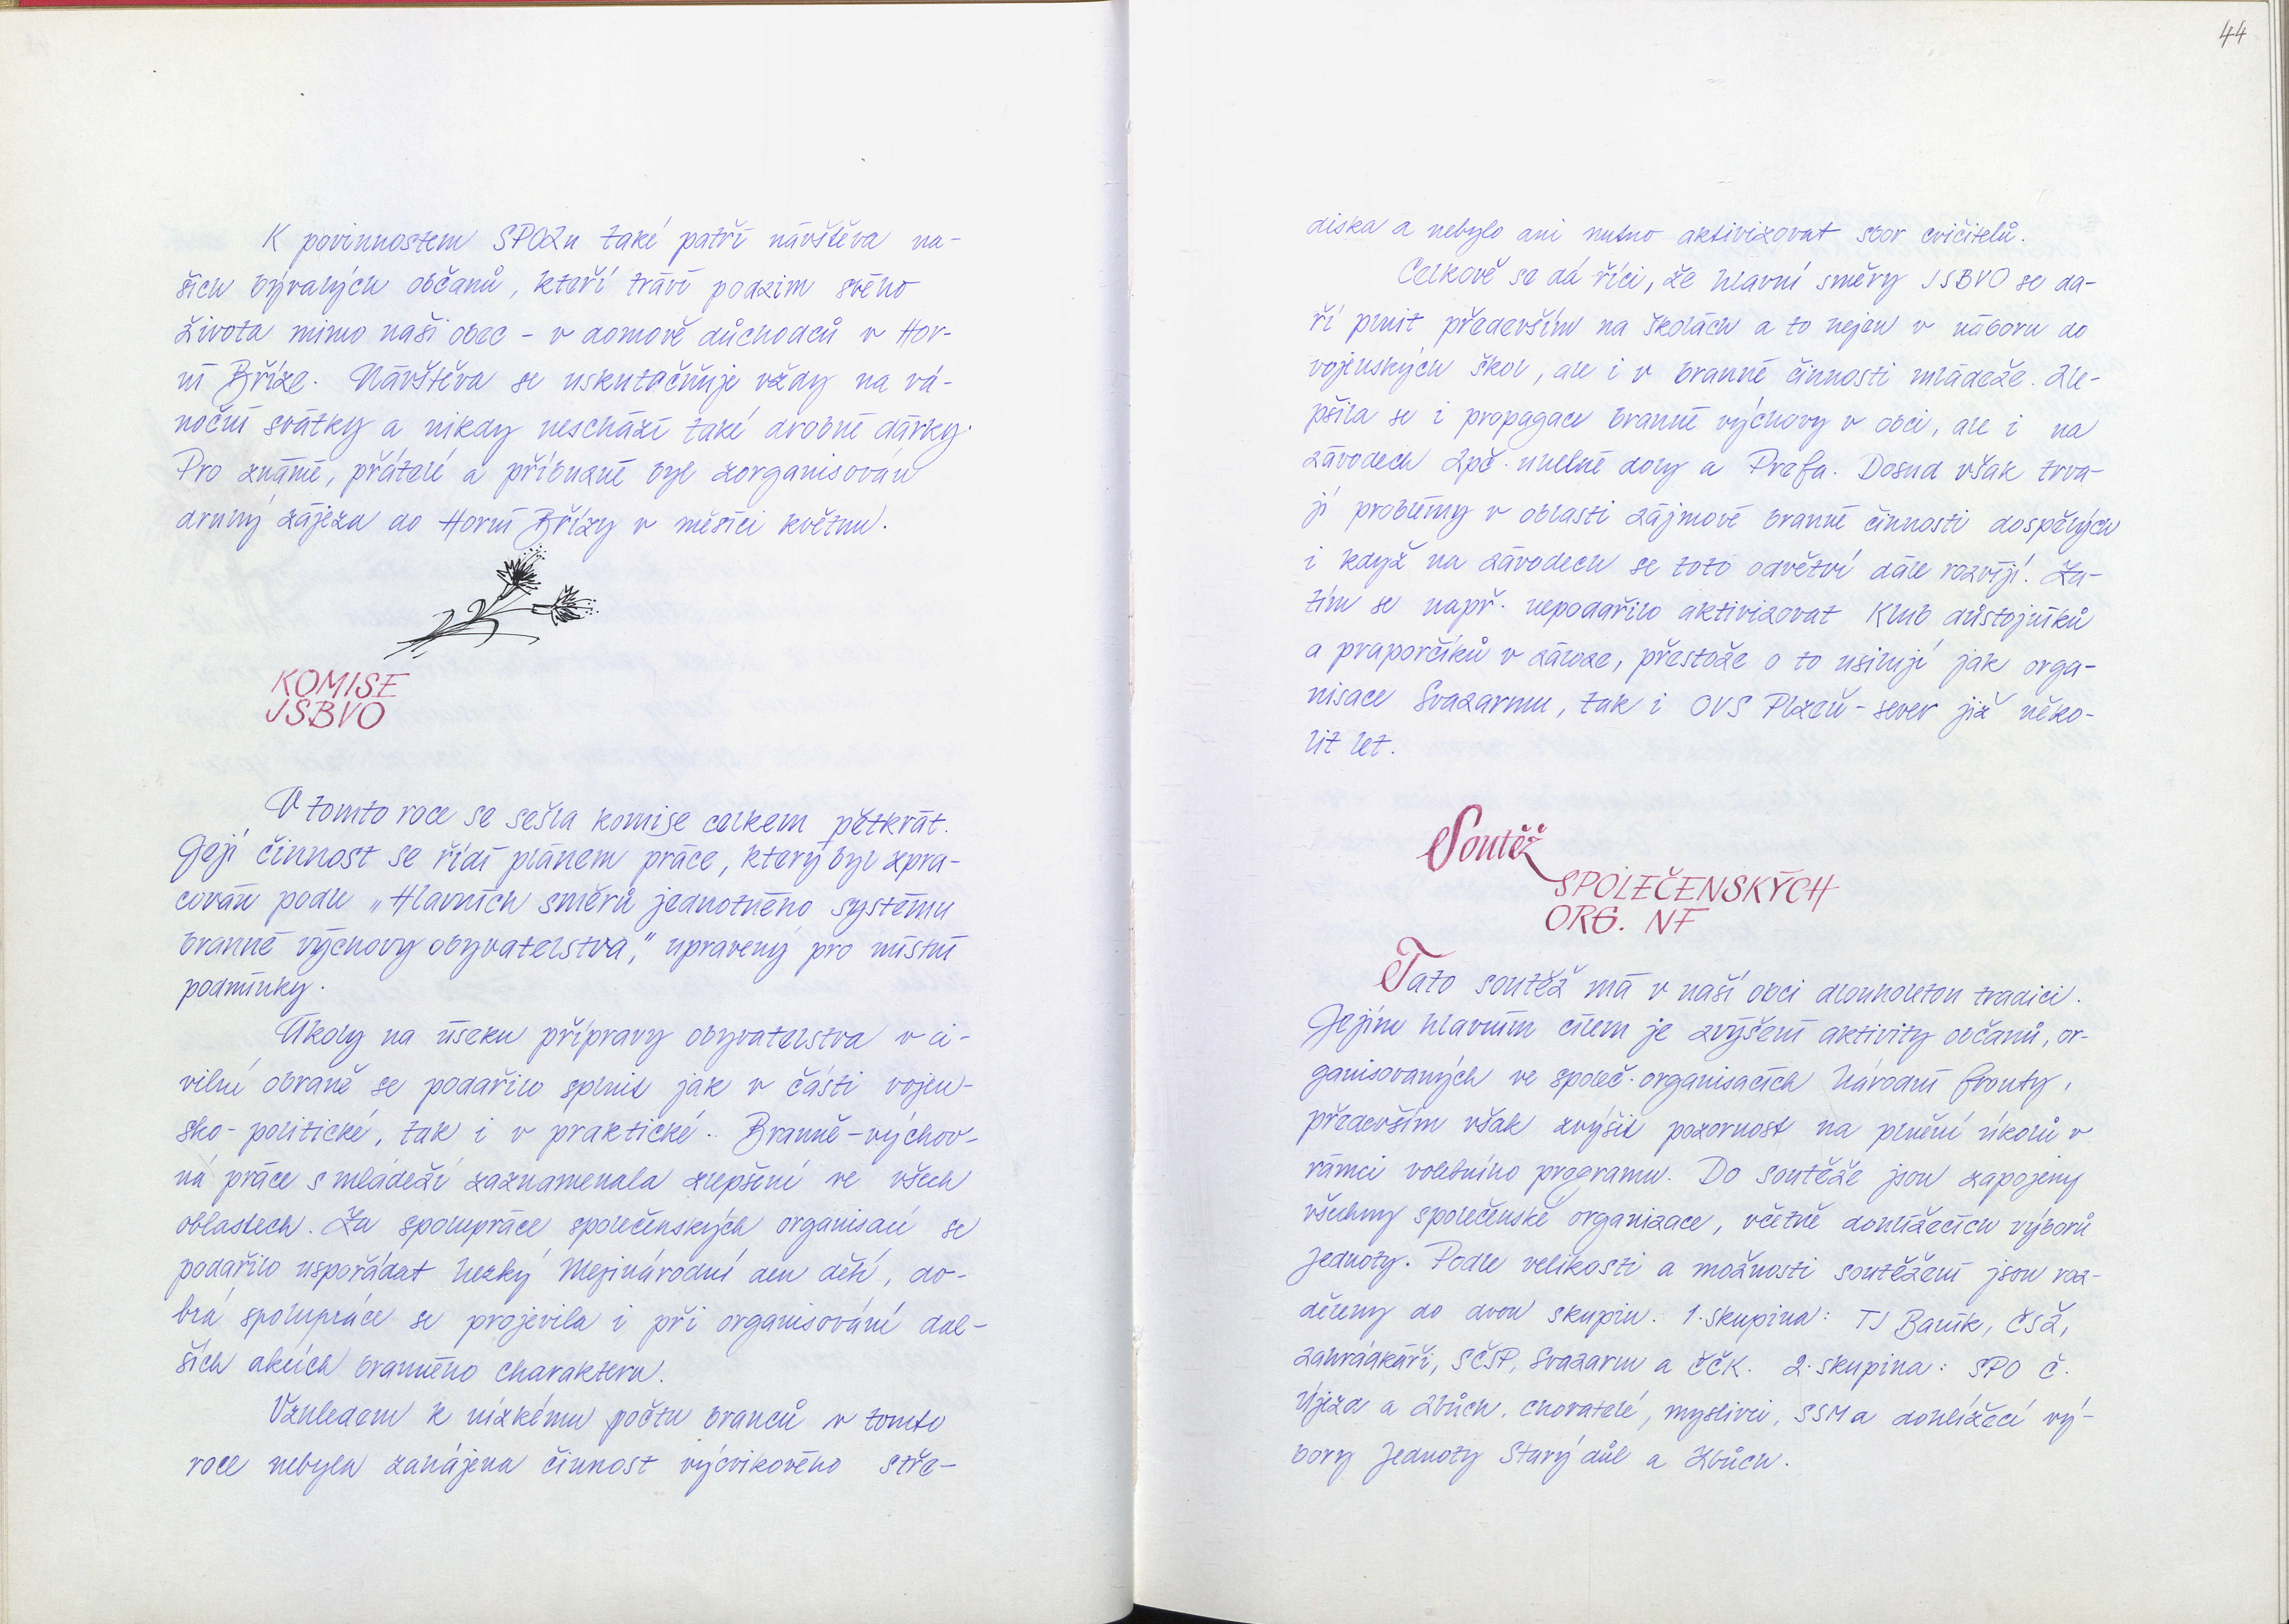 K povinnostem SPOZu také patří návštěva na-
šich bývalých občanů, kteří tráví podzim svého
života mimo naši obec - v domově důchodců v Hor-
ní Bříze. Návštěva se uskutečňuje vždy na vá-
noční svátky a nikdy neschází také drobné dárky.
Pro známé, přátelé a příbuzné byl zorganisován
druhý zájezd do Horní Břízy v měsíci květnu.
KOMISE
JSBVO
V tomto roce se sešla komise celkem pětkrát.
Její činnost se řídí plánem práce, který byl zpra-
cován podle „Hlavních směrů jednotného systému
branné výchovy obyvatelstva," upravený pro místní
podmínky.
Úkoly na úseku přípravy obyvatelstva v ci-
vilní obraně se podařilo splnit jak v části vojen-
sko-politické, tak i v praktické. Branně-výchov-
ná práce s mládeží zaznamenala zlepšení ve všech
oblastech. Za spolupráce společenských organisací se
podařilo uspořádat hezký Mezinárodní den dětí, do-
brá spolupráce se projevila i při organisování dal-
ších akcích branného charakteru.
Vzhledem k nízkému počtu branců v tomto
roce nebyla zahájena činnost výcvikového stře-
44
diska a nebylo ani nutno aktivizovat sbor cvičitelů.
Celkově se dá říci, že hlavní směry JSBVO se da-
ří plnit především na školách a to nejen v náboru do
vojenských škol, ale i v branné činnosti mládeže. Zle-
pšila se i propagace branné výchovy v obci, ale i na
závodech Zpč. uhelné doly a Prefa. Dosud však trva-
jí problémy v oblasti zájmové branné činnosti dospělých
i když na závodech se toto odvětví dále rozvíjí. Za-
tím se např. nepodařilo aktivizovat Klub důstojníků
a praporčíků v záloze, přestože o to usilují jak orga-
nisace Svazarmu, tak i OVS Plzeň-sever již něko-
lit let.
Soutěž
SPOLEČENSKÝCH
ORG. NF
Tato soutěž má v naší obci dlouholetou tradici.
Jejím hlavním cílem je zvýšení aktivity občanů, or-
ganisovaných ve společ. organisacích Národní fronty,
především však zvýšit pozornost na plnění úkolů v
rámci volebního programu. Do soutěže jsou zapojeny
všechny společenské organizace, včetně dohlížecích výborů
Jednoty. Podle velikosti a možnosti soutěžení jsou roz-
děleny do dvou skupin. 1. skupina: TJ Baník, ČSŽ,
zahrádkáři, SČSP, Svazarm a ČČK. 2. skupina: SPO Č.
Újezd a Zbůch, chovatelé, myslivci, SSM a dohlížecí vý-
bory Jednoty Starý důl a Zbůch.